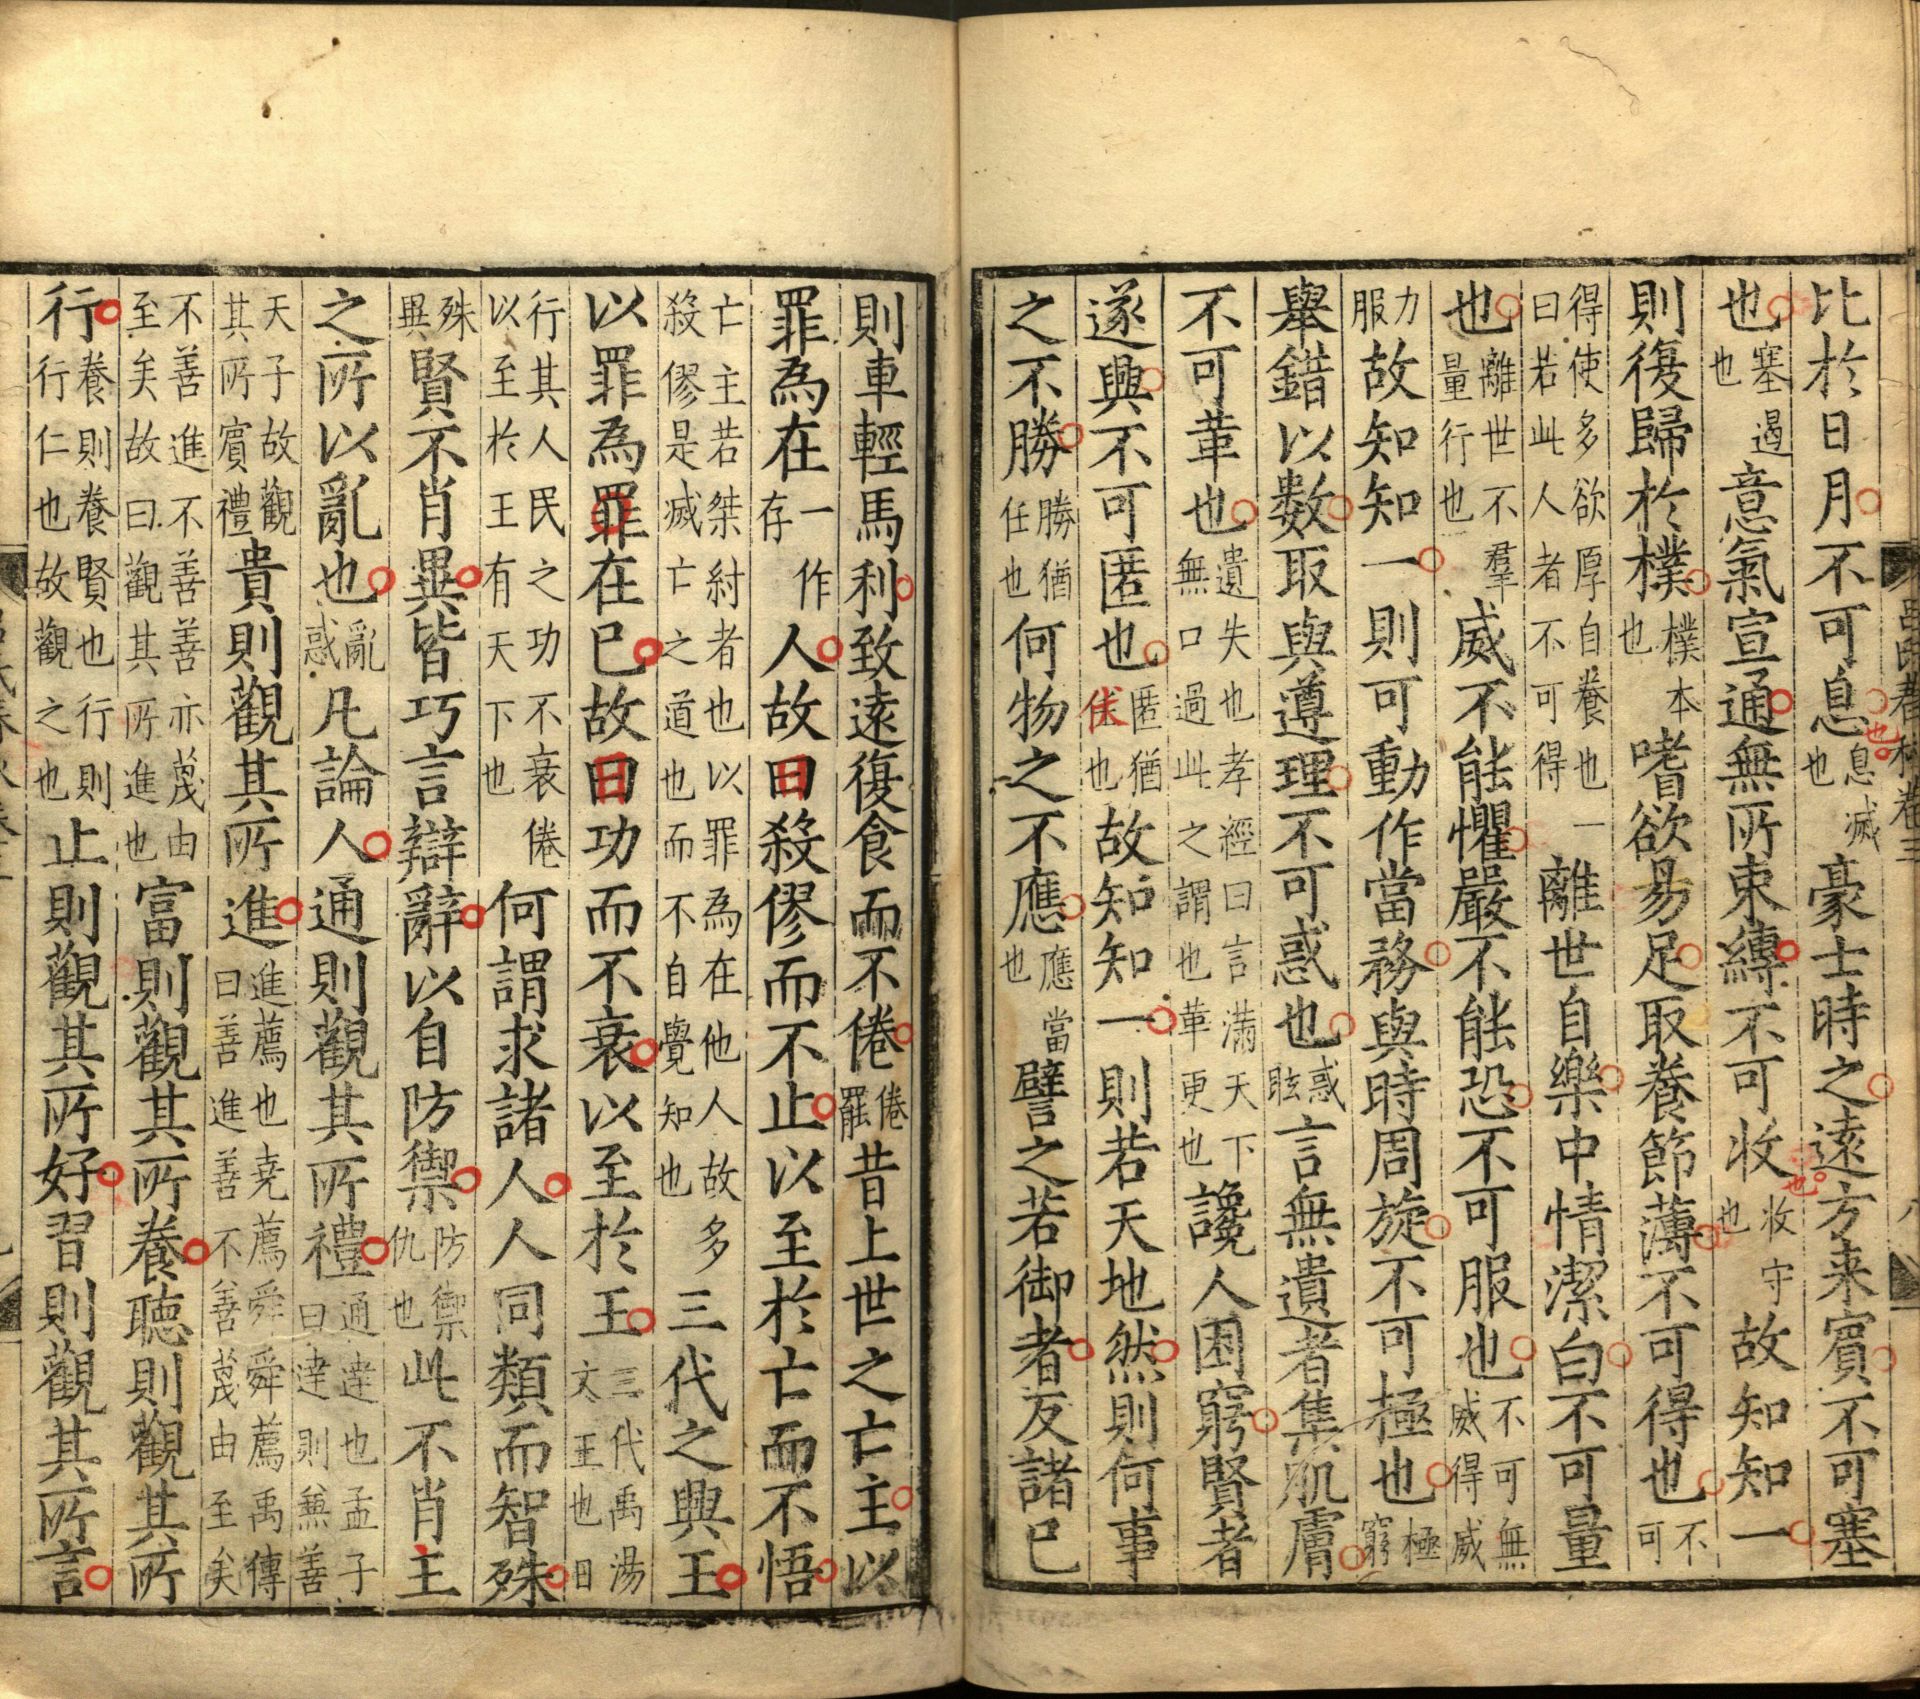 比於日月不可息也息滅豪士時之遠方来賓不可塞
也塞遏也意氣宣通無所束縳不可收收守也故知知一
則復歸於樸樸本也嗜欲易足取養節薄不可得也不可
得使多欲厚自養也一曰若此人者不可得離世自樂中情潔白不可量
也離世不羣量行也威不能懼嚴不能恐不可服也不可無威得威
力服故知知一則可動作當務與時周旋不可極也極窮
舉錯以數取與遵理不可惑也惑眩言無遺者集肌膚
不可革也遺失也孝經曰言滿天下無口過此之謂也革更也讒人困窮賢者
遂興不可匿也匿猶伏也故知知一則若天地然則何事
之不勝勝猶任也何物之不應應當也譬之若御者反諸己
則車輕馬利致遠復食而不倦倦罷昔上世之亡主以
罪為在人一作存故曰殺僇而不止以至於亡而不悟
亡主若桀紂者也以罪為在他人故多殺僇是滅亡之道也而不自覺知也三代之興王
以罪為罪在己故曰功而不衰以至於王三代禹湯文王也日
行其人民之功不衰倦以至於王有天下也何謂求諸人人同類而智殊
殊異賢不肖異皆巧言辯辭以自防禦防禦仇也此不肖主
之所以亂也亂惑凡論人通則觀其所禮通達也孟子曰達則兼善
天子故觀其所賓禮貴則觀其所進進薦也堯薦舜舜薦禹傳曰善進善不善蔑由至矣
不善進不善善亦蔑由至矣故曰觀其所進也富則觀其所養聽則觀其所
行養則養賢也行則行仁也故觀之也止則觀其所好習則觀其所言